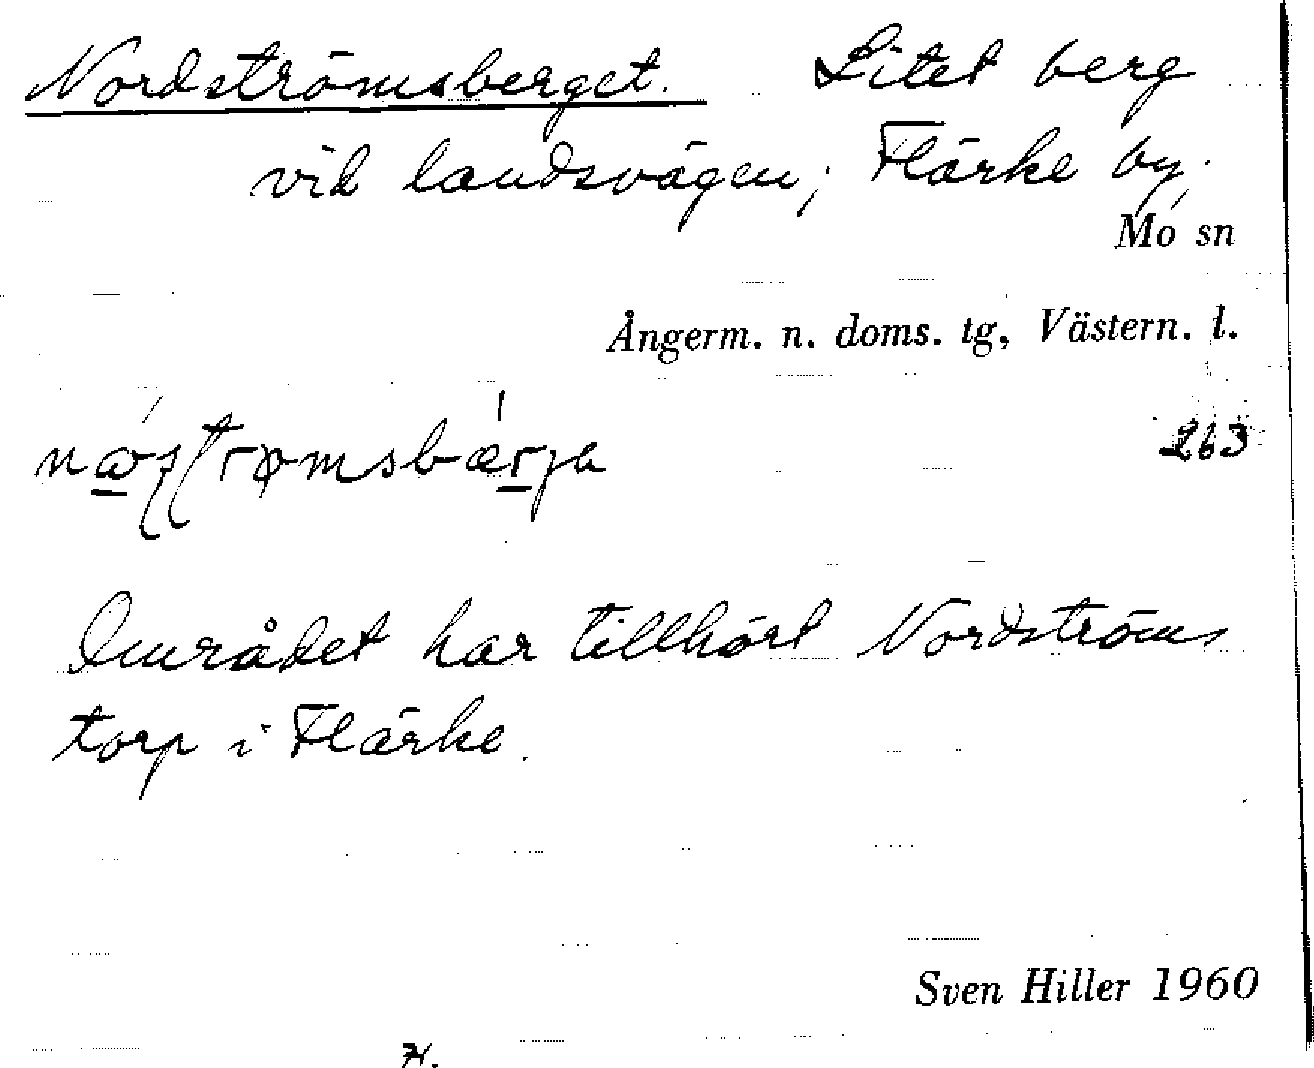 Nordströmsberget. Litet berg
vid landsvägen; Flärke by.
Mo sn
Ångerm. n. doms. tg, Västern. l.
263
Området har tillhört Nordströms
torp i Flärke.
Sven Hiller 1960
H.